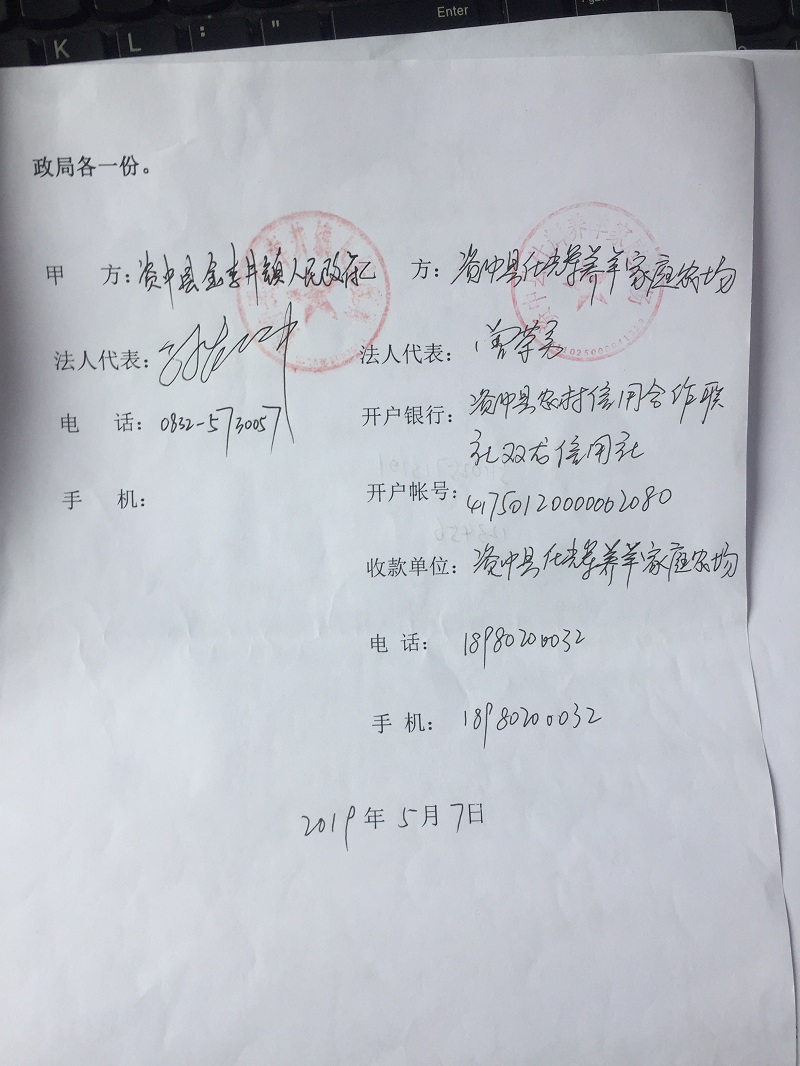 K L : " Enter
政局各一份。
甲 方：资中县金李井镇人民政府乙 方：资中县仕光荣养羊家庭农场
法人代表： 法人代表：曾荣美
电 话：0832-5730057 开户银行：资中县农村信用合作联
社双龙信用社
手 机： 开户帐号：41750120000062080
收款单位：资中县仕光荣养羊家庭农场
电 话：18980200032
手 机：18980200032
2019年5月7日